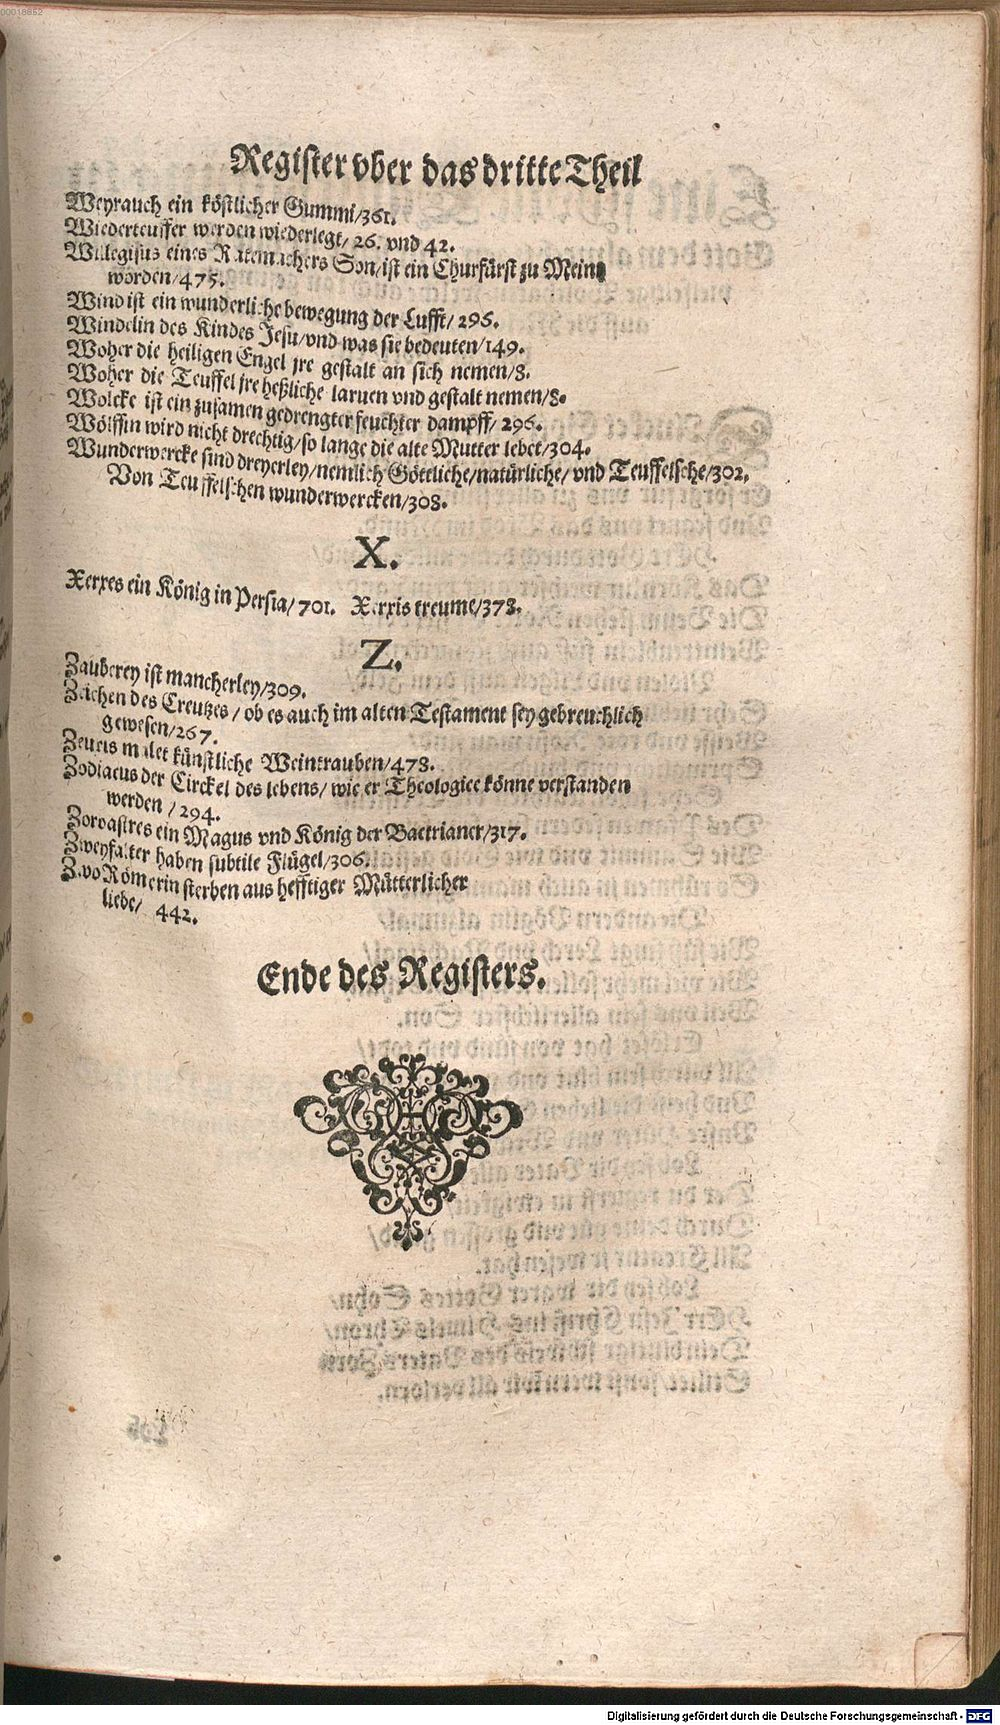 00018862
Register vber das dritte Theil
Weyrauch ein köstlicher Gummi/361.
Wiederteuffer werden wiederlegt/ 26. vnd 42.
Willegisus eines Rademachers Son/ist ein Churfürst zu Meintz
worden/475.
Wind ist ein wunderliche bewegung der Lufft/ 296.
Windelin des Kindes Jesu/vnd was sie bedeuten/149.
Woher die heiligen Engel jre gestalt an sich nemen/8.
Woher die Teuffel jre heßliche laruen vnd gestalt nemen/8.
Wolcke ist ein zusamen gedrengter feuchter dampff/ 296.
Wölffin wird nicht drechtig/so lange die alte Mutter lebet/304.
Wunderwercke sind dreyerley/nemlich Göttliche/natürliche/ vnd Teuffelsche/302.
Von Teuffelschen wunderwercken/308.
X.
Xerxes ein König in Persia/ 701. Xerxis treume/378.
Z.
Zauberey ist mancherley/309.
Zeichen des Creutzes / ob es auch im alten Testament sey gebreuchlich
gewesen/267.
Zeuxis malet künstliche Weintrauben/478.
Zodiacus der Circkel des lebens/ wie er Theologice könne verstanden
werden / 294.
Zoroastres ein Magus vnd König der Bactrianer/317.
Zweyfalter haben subtile Flügel/306.
Zwo Römerin sterben aus hefftiger Mütterlicher
liebe/ 442.
Ende des Registers.
Digitalisierung gefördert durch die Deutsche Forschungsgemeinschaft - DFG